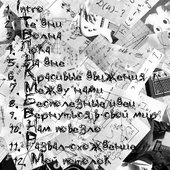 1. Intro
2. Те дни
3. Волна
4. Пока
5. На дне
6. Красивые движения
7. Между нами
8. Бесполезные идеи
9. Вернуться в свой мир
10. Нам повезло
11. Развал-схождение
12. Мой потолок